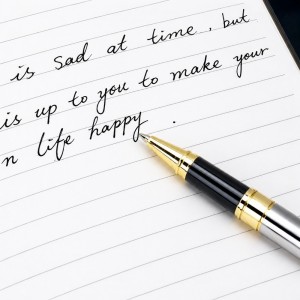 is sad at time, but
is up to you to make your
n life happy.